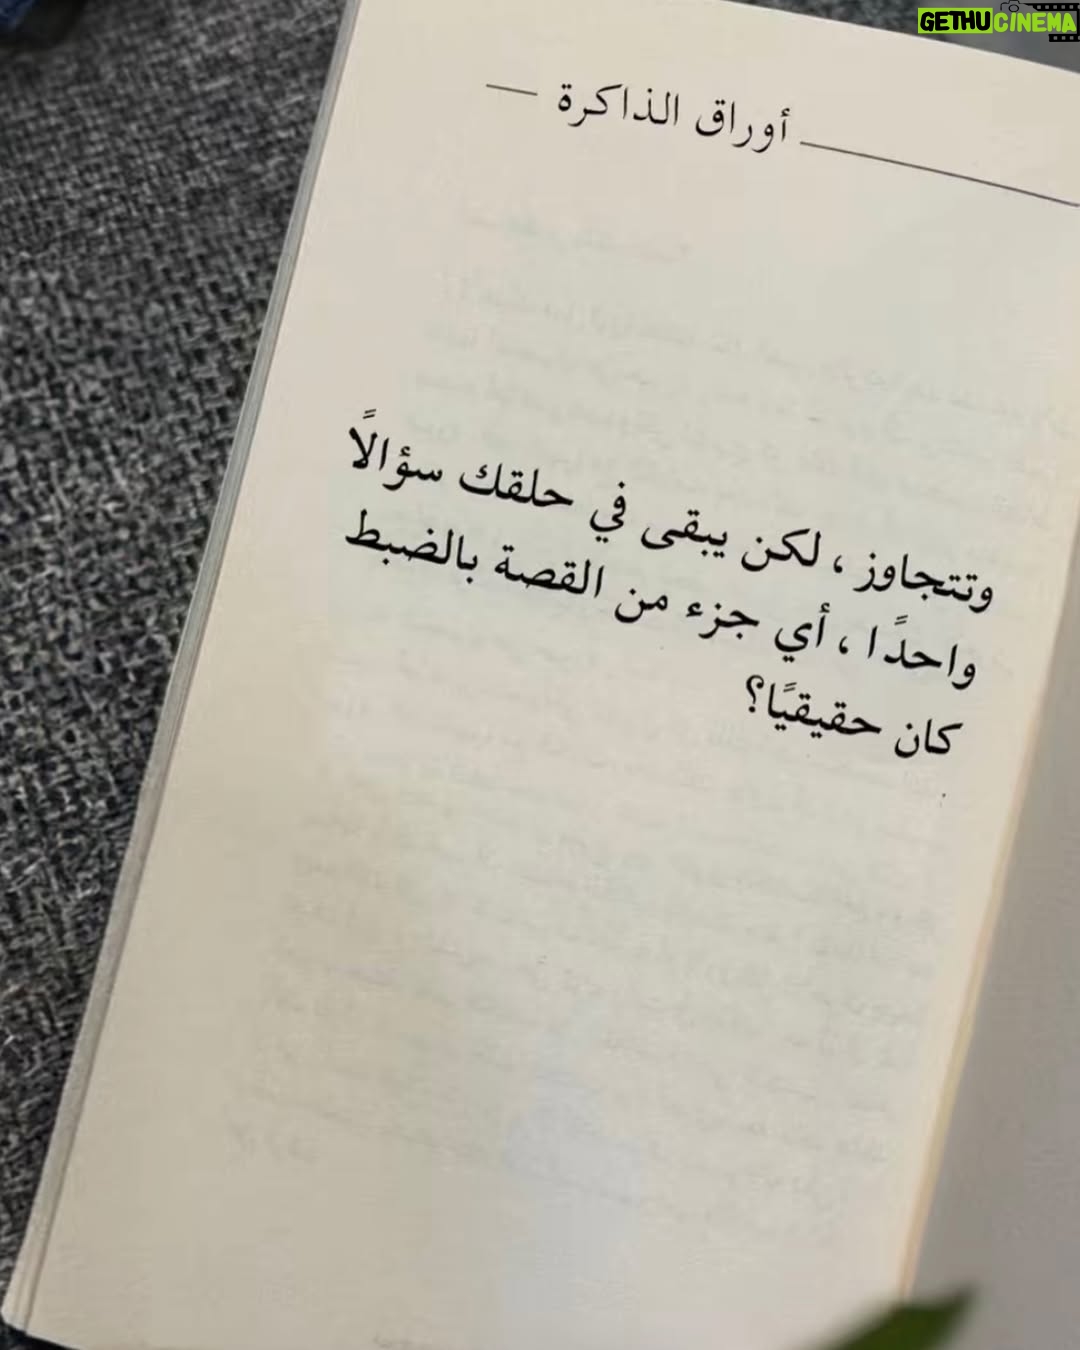 GETHUCINEMA
أوراق الذاكرة
وتتجاوز ، لكن يبقى في حلقك سؤالًا
واحدًا ، أي جزء من القصة بالضبط
كان حقيقيًا؟